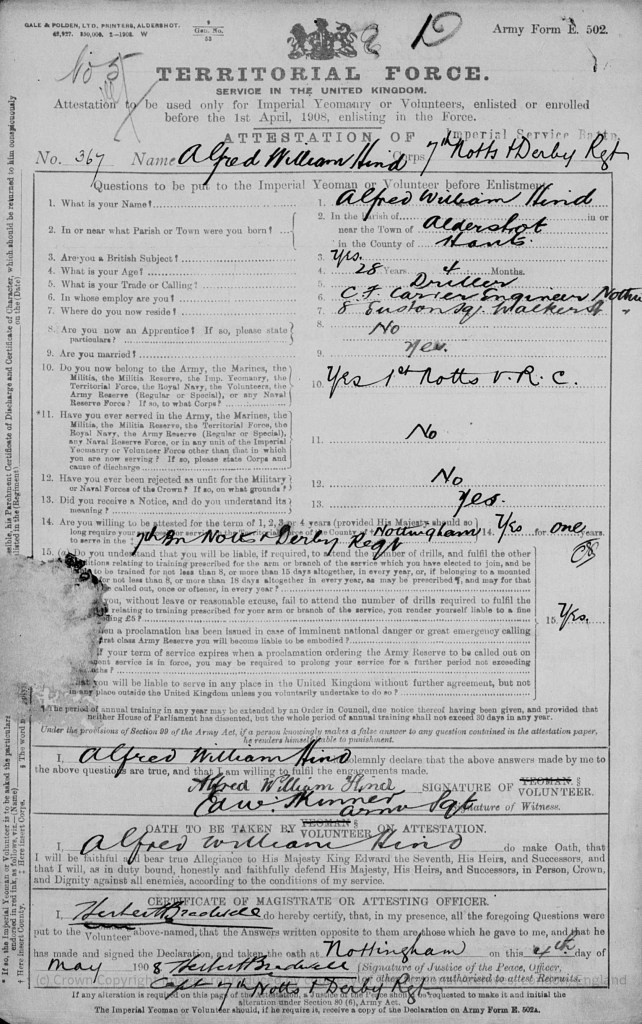 GALE & POLDEN, LTD., PRINTERS, ALDERSHOT.
Army Form E. 502.
No 5
TERRITORIAL FORCE.
SERVICE IN THE UNITED KINGDOM.
Attestation to be used only for Imperial Yeomanry or Volunteers, enlisted or enrolled
before the 1st April, 1908, enlisting in the Force.
ATTESTATION OF Imperial Service Battn.
No. 367 Name Alfred William Hind Corps 7th Notts & Derby Rgt
Questions to be put to the Imperial Yeoman or Volunteer before Enlistment.
1. What is your Name? 1. Alfred William Hind
2. In or near what Parish or Town were you born? 2. In the Parish of in or
near the Town of Aldershot
in the County of Hants.
3. Are you a British Subject? 3. Yes.
4. What is your Age? 4. 28 Years 4 Months.
5. What is your Trade or Calling? 5. Driller
6. In whose employ are you? 6. Engineer
7. Where do you now reside? 7. 8 Euston Sq. Walker St
8. Are you now an Apprentice? If so, please state
particulars? 8. No
9. Are you married? 9. Yes.
10. Do you now belong to the Army, the Marines, the
Militia, the Militia Reserve, the Imp. Yeomanry, the
Territorial Force, the Royal Navy, the Volunteers, the
Army Reserve (Regular or Special), or any Naval
Reserve Force? If so, to what Corps? 10. Yes 1st Notts V. R. C.
*11. Have you ever served in the Army, the Marines, the
Militia, the Militia Reserve, the Territorial Force, the
Royal Navy, the Army Reserve (Regular or Special),
any Naval Reserve Force, or in any unit of the Imperial
Yeomanry or Volunteer Force other than that in which
you are now serving? If so, please state Corps and
cause of discharge 11. No
12. Have you ever been rejected as unfit for the Military
or Naval Forces of the Crown? If so, on what grounds? 12. No
13. Did you receive a Notice, and do you understand its
meaning? 13. Yes.
14. Are you willing to be attested for the term of 1, 2, 3, or 4 years (provided His Majesty should so
long require your services) for the County of Nottingham 14. Yes for one years.
to serve in the 7th Bn Notts & Derby Regt
15. (a) Do you understand that you will be liable, if required, to attend the number of drills, and fulfil the other
conditions relating to training prescribed for the arm or branch of the service which you have elected to join, and be
liable to be trained for not less than 8, or more than 15 days altogether in every year, or, if belonging to a mounted
for not less than 8, or more than 18 days altogether in every year, as may be prescribed ¶, and may for that
be called out, once or oftener, in every year?
you, without leave or reasonable excuse, fail to attend the number of drills required to fulfil the
relating to training prescribed for your arm or branch of the service, you render yourself liable to a fine
£5? 15. Yes.
when a proclamation has been issued in case of imminent national danger or great emergency calling
first class Army Reserve you will become liable to be embodied?
if your term of service expires when a proclamation ordering the Army Reserve to be called out on
service is in force, you may be required to prolong your service for a further period not exceeding
months?
that you will be liable to serve in any place in the United Kingdom without further agreement, but not
in any place outside the United Kingdom unless you voluntarily undertake to do so?
¶ The period of annual training in any year may be extended by an Order in Council, due notice thereof having been given, and provided that
neither House of Parliament has dissented, but the whole period of annual training shall not exceed 30 days in any year.
Under the provisions of Section 99 of the Army Act, if a person knowingly makes a false answer to any question contained in the attestation paper,
he renders himself liable to punishment.
I, Alfred William Hind solemnly declare that the above answers made by me to
the above questions are true, and that I am willing to fulfil the engagements made.
Alfred William Hind SIGNATURE OF YEOMAN. § VOLUNTEER.
Edw. Skinner Signature of Witness.
OATH TO BE TAKEN BY YEOMAN § VOLUNTEER ON ATTESTATION.
I, Alfred William Hind do make Oath, that
I will be faithful and bear true Allegiance to His Majesty King Edward the Seventh, His Heirs, and Successors, and
that I will, as in duty bound, honestly and faithfully defend His Majesty, His Heirs, and Successors, in Person, Crown,
and Dignity against all enemies, according to the conditions of my service.
CERTIFICATE OF MAGISTRATE OR ATTESTING OFFICER.
I, Herbert Bradwell do hereby certify, that, in my presence, all the foregoing Questions were
put to the Volunteer above-named, that the Answers written opposite to them are those which he gave to me, and that he
has made and signed the Declaration, and taken the oath at Nottingham on this 4th day of
May 1908 Herbert Bradwell (Signature of Justice of the Peace, Officer,
Capt 7th Notts & Derby Rgt or other person authorised to attest Recruits.
If any alteration is required on this page of the Attestation, a Justice of the Peace should be requested to make it and initial the
alteration under Section 80 (6), Army Act.
The Imperial Yeoman or Volunteer should, if he require it, receive a copy of the Declaration on Army Form E. 502A.